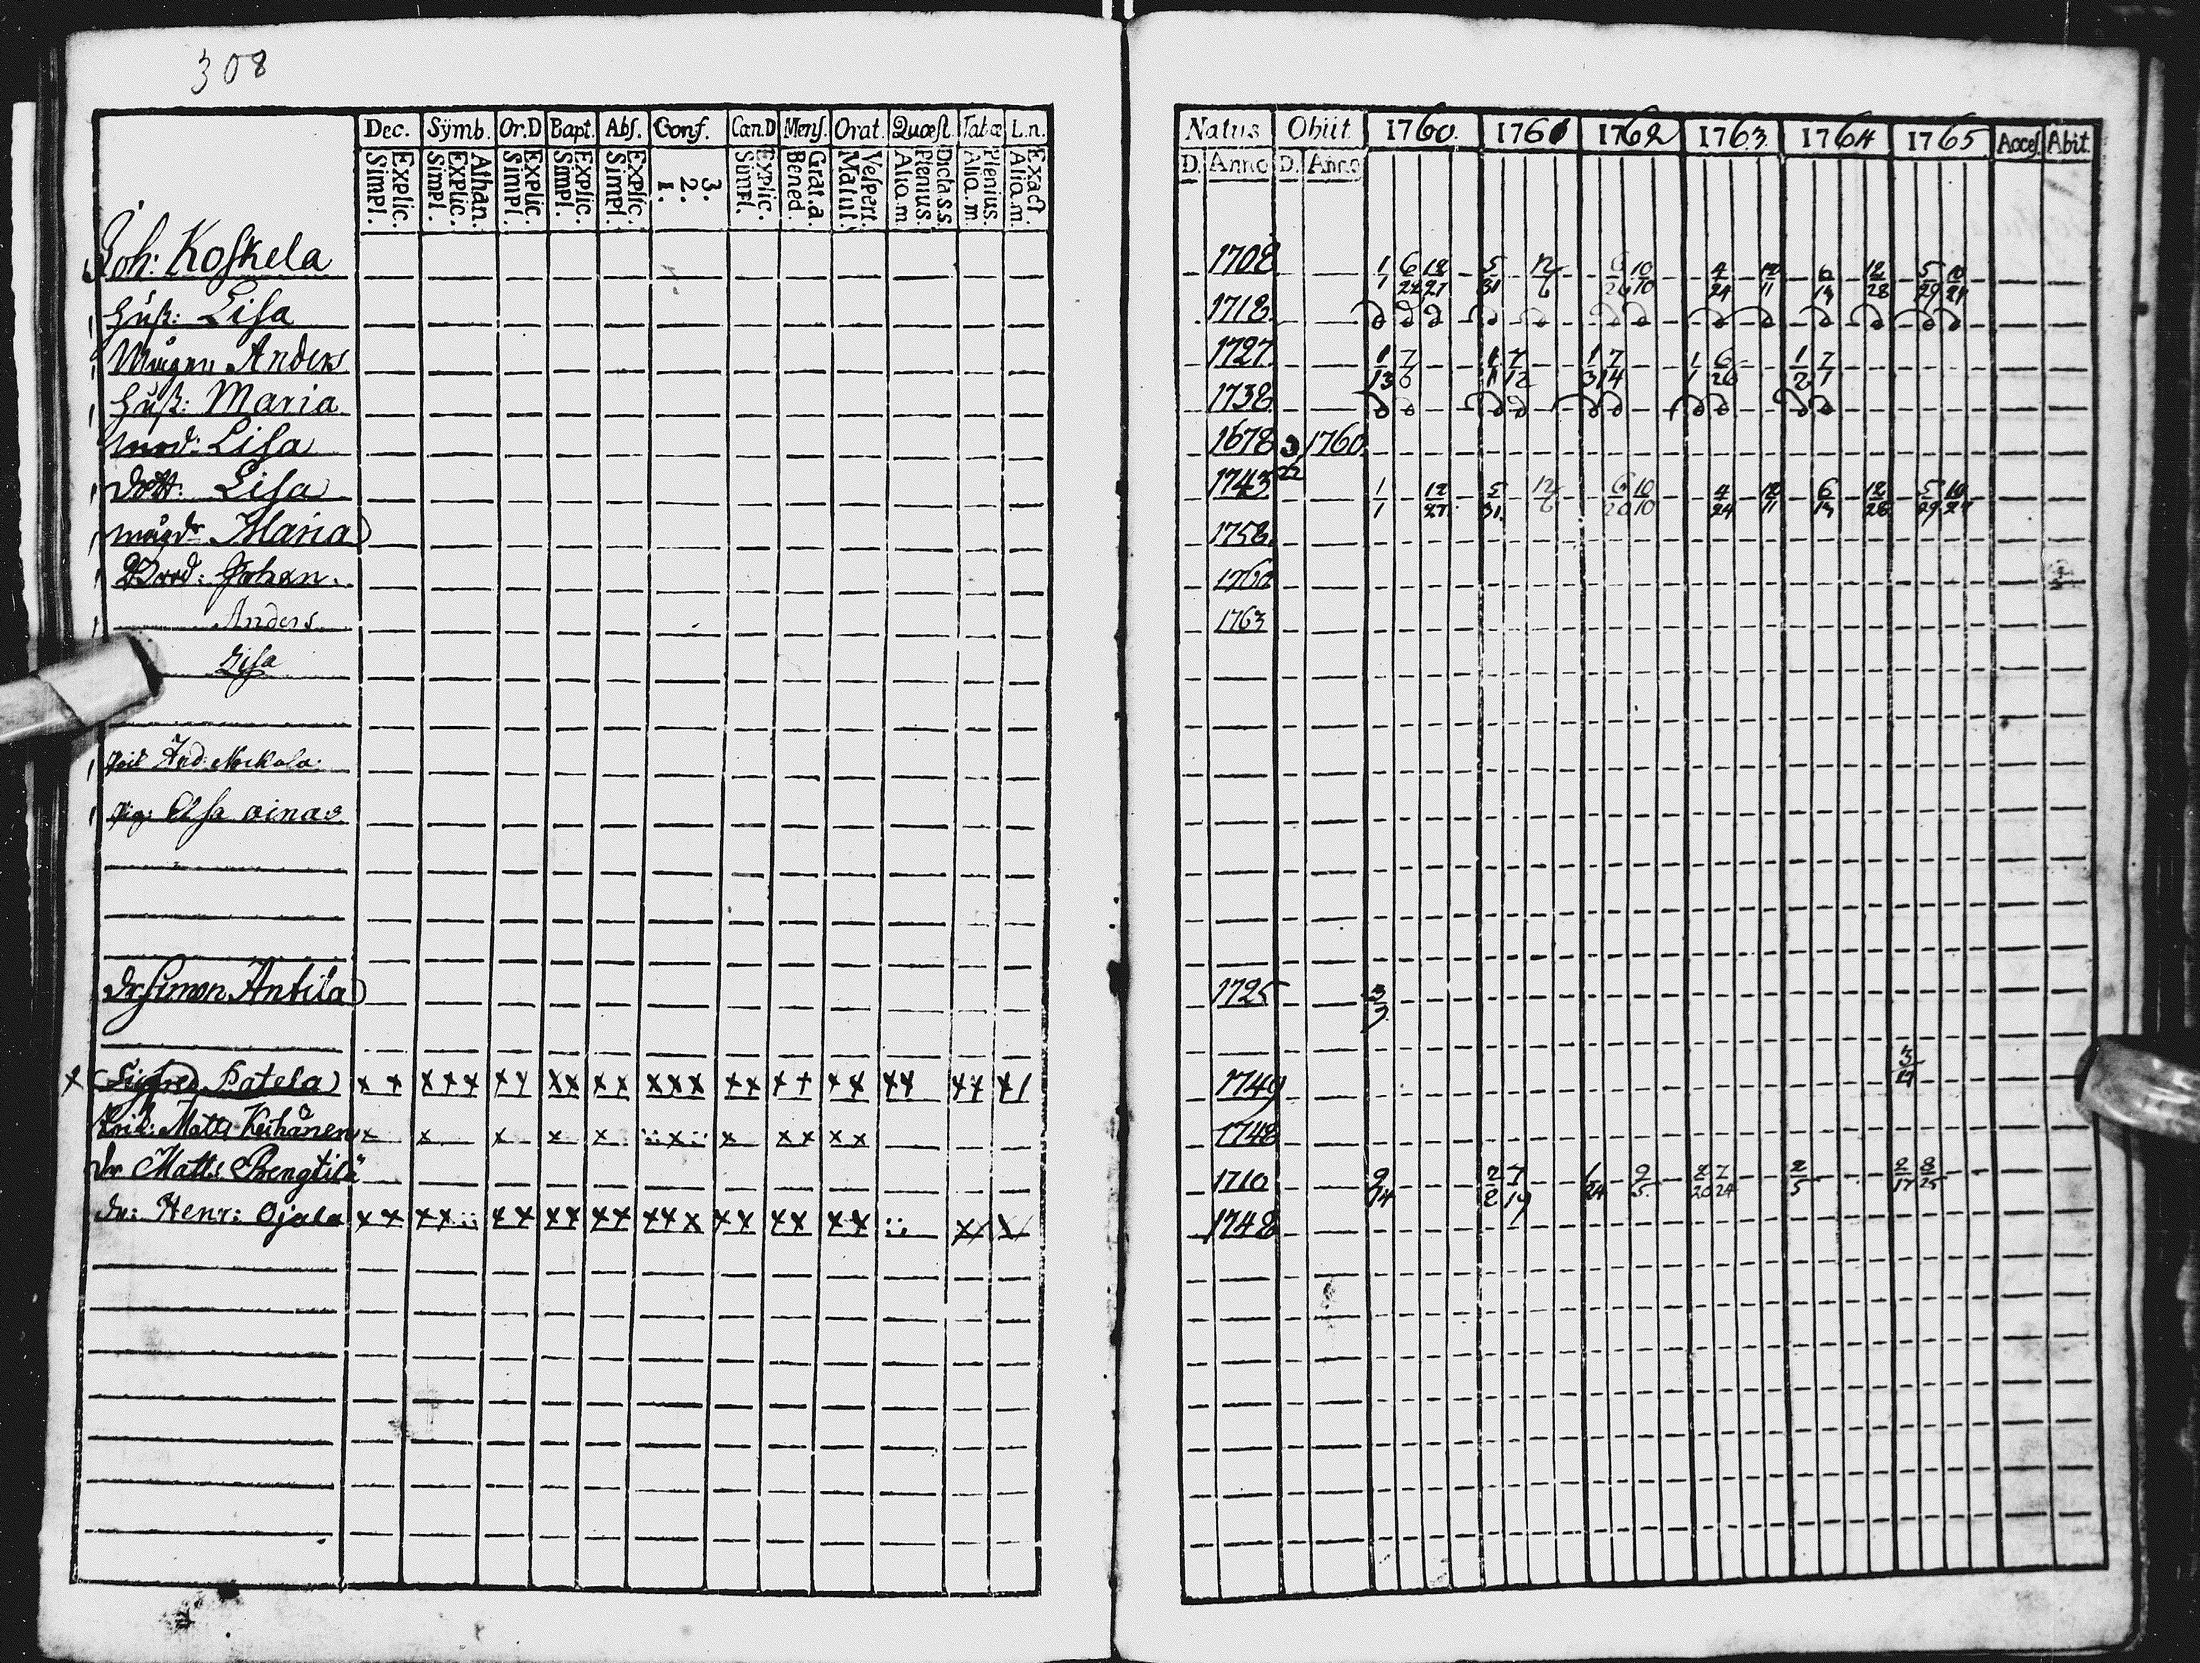 308
Dec. Symb. Or.D Bapt. Abs. Conf. Can.D Mens. Orat. Quæst. Tabæ L.n.
Explic. Simpl. Athan. Explic. Simpl. Explic. Simpl. Explic. Simpl. Explic. Simpl. 3. 2. 1. Explic. Simpl. Grat.a. Bened. Vespert. Matut. Dicta.s.s Plenius. Aliq.m. Plenius. Aliq.m. Exact. Aliq.m.
Natus Obiit 1760. 1761 1762 1763. 1764 1765 Acces. Abit.
D. Anno D. Anno
Joh: Koskela 1708 1/1 6/22 12/27 5/31 12/6 6/20 10/10 4/24 12/11 6/14 12/28 5/29 10/27
Hust: Lisa 1718
Mågen Anders 1727 1/13 7/6 1/1 7/12 1/31 7/4 1/1 6/26 1/2 7/1
Hust: Maria 1738
mod: Lisa 1678 3/22 1760
dott: Lisa 1743 1/1 12/27 5/31 12/6 6/20 10/10 4/24 12/11 6/14 12/28 5/29 10/27
Maria 1758
Johan 1760
Anders 1763
Lisa
And:
Elsa oinas
dr Simon Antila 1725 3/3
x Sigfred Patela x x x x x x x x x x x x x x x x x x x x x x x x x x 1749
Matts 1748
dr Matts Bengtilä 1710 9/14 2/2 7/19 1/24 9/5 2/20 7/24 2/5 2/17 8/25
dr: Henr: Ojala x x x x x x x x x x x x x x x x x x x x x x 1748